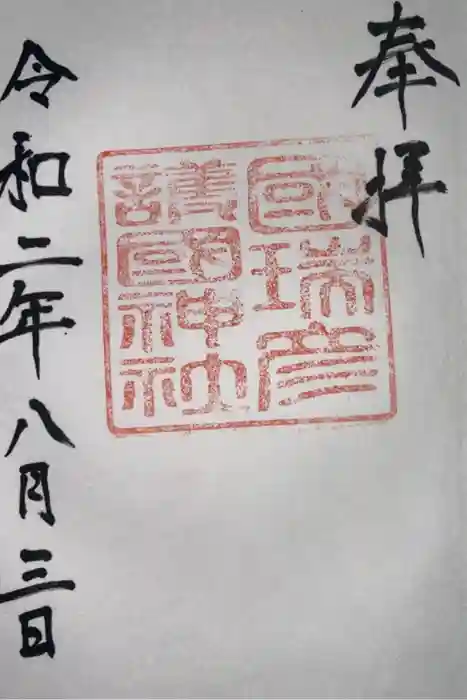 奉拝
國瑞彦
護國神社
令和二年八月三日